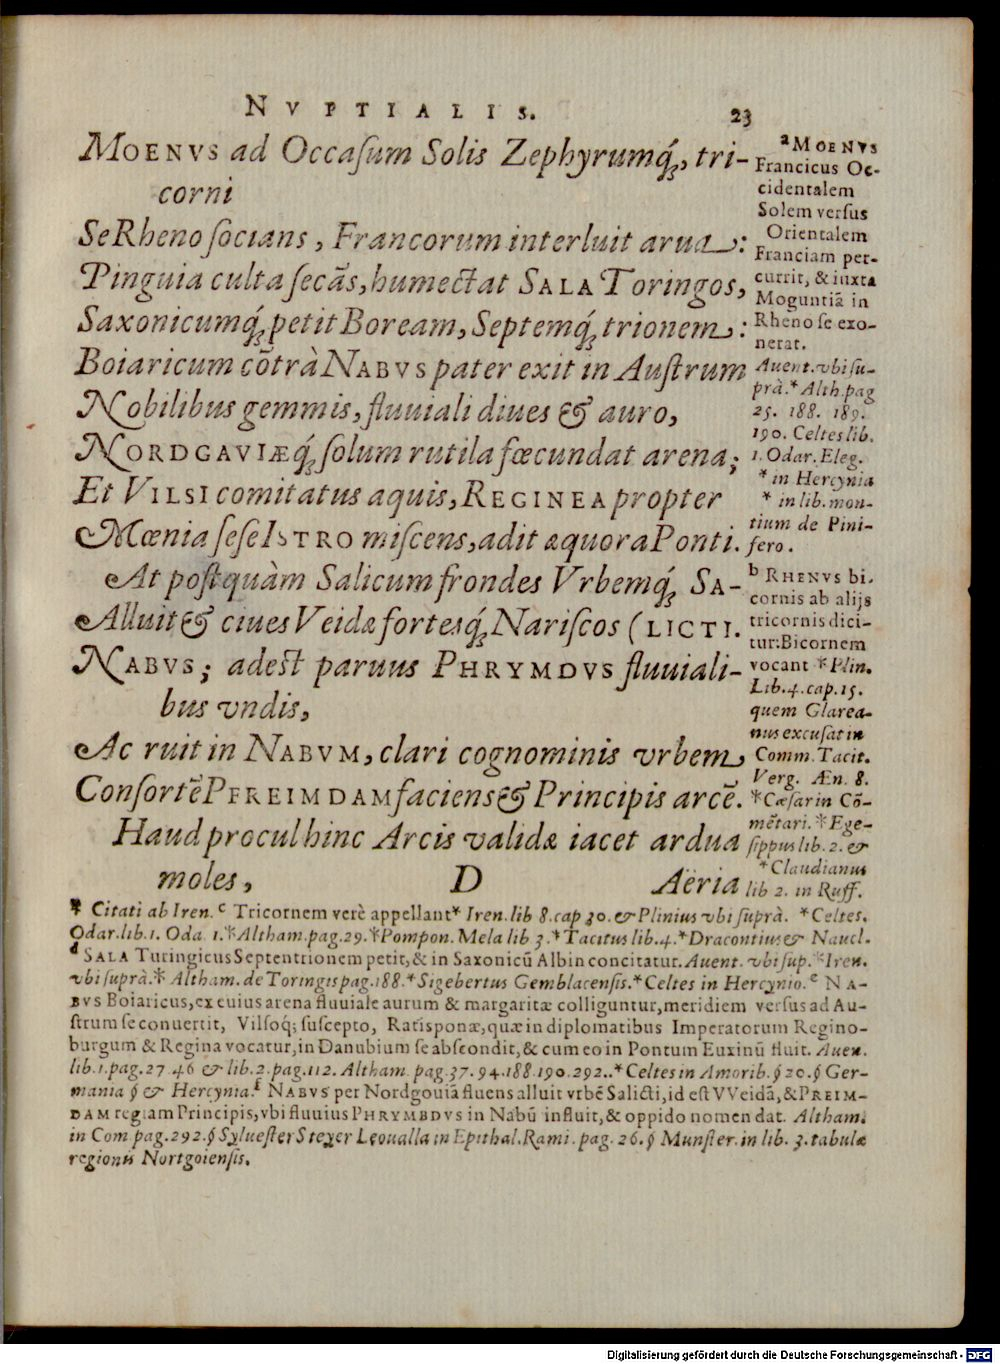 NVPTIALIS. 23
MOENVS ad Occaſum Solis Zephyrumq́;, tri-
corni
Se Rheno ſocians, Francorum interluit arua:
Pinguia culta ſecãs, humectat SALA Toringos,
Saxonicumq́; petit Boream, Septemq́; trionem:
Boiaricum cõtrà NABVS pater exit in Auſtrum
Nobilibus gemmis, fluuiali diues & auro,
NORDGAVIÆq́; ſolum rutila fœcundat arena;
Et VILSI comitatus aquis, REGINEA propter
Mœnia ſeſe ISTRO miſcens, adit æquora Ponti.
At poſtquàm Salicum frondes Vrbemq́; SA-
Alluit & ciues Veidæ fortesq́; Nariſcos (LICTI.
NABVS; adeſt paruus PHRYMDVS fluuiali-
bus vndis,
Ac ruit in NABVM, clari cognominis vrbem
Conſortẽ PFREIMDAM faciens & Principis arcẽ.
Haud procul hinc Arcis validæ iacet ardua
moles, D Aëria
ᵃ MOENVS
Francicus Oc-
cidentalem
Solem verſus
Orientalem
Franciam per-
currit, & iuxta
Moguntiã in
Rheno ſe exo-
nerat.
Auent. vbi ſu-
prà. * Alth. pag
25. 188. 189.
190. Celtes lib.
1. Odar. Eleg.
* in Hercynia
* in lib. mon-
tium de Pini-
fero.
ᵇ RHENVS bi-
cornis ab alijs
tricornis dici-
tur: Bicornem
vocant * Plin.
Lib. 4. cap. 15.
quem Glarea-
nus excuſat in
Comm. Tacit.
Verg. Æn. 8.
* Cæſar in Cõ-
mẽtari. * Ege-
ſippus lib. 2. &
* Claudianus
lib 2. in Ruff.
* Citati ab Iren. ᶜ Tricornem verè appellant * Iren. lib 8. cap 30. & Plinius vbi ſuprà. * Celtes.
Odar. lib. 1. Oda 1. * Altham. pag. 29. * Pompon. Mela lib 3. * Tacitus lib. 4. * Dracontius & Naucl.
ᵈ SALA Turingicus Septentrionem petit, & in Saxonicũ Albin concitatur. Auent. vbi ſup. * Iren.
vbi ſuprà. * Altham. de Toringis pag. 188. * Sigebertus Gemblacenſis. * Celtes in Hercynio. ᵉ NA-
BVS Boiaricus, ex cuius arena fluuiale aurum & margaritæ colliguntur, meridiem verſus ad Au-
ſtrum ſe conuertit, Vilſoq́; ſuſcepto, Ratisponæ, quæ in diplomatibus Imperatorum Regino-
burgum & Regina vocatur, in Danubium ſe abſcondit, & cum eo in Pontum Euxinũ fluit. Auen.
lib. 1. pag. 27 46 & lib. 2. pag. 112. Altham. pag. 37. 94. 188. 190. 292.. * Celtes in Amorib. § 20. § Ger-
mania § & Hercynia. ᶠ NABVS per Nordgouiã fluens alluit vrbẽ Saliſti, id eſt VVeidã, & PREIM-
DAM regiam Principis, vbi fluuius PHRYMBDVS in Nabũ influit, & oppido nomen dat. Altham.
in Com pag. 292. § Sylueſter Steyer Leoualla in Epithal. Rami. pag. 26. § Munſter. in lib. 3. tabulæ
regionis Nortgoienſis.
Digitalisierung gefördert durch die Deutsche Forschungsgemeinschaft - DFG